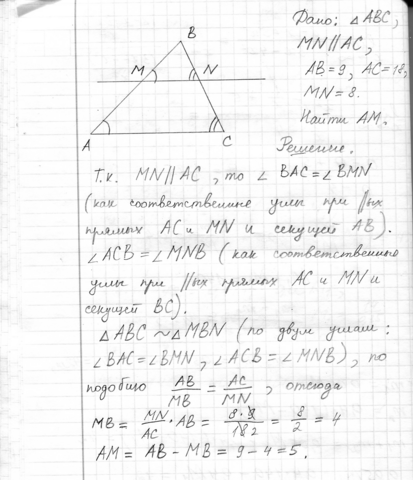 Дано: △ABC,
MN||AC,
AB=9, AC=18,
MN=8.
Найти AM.
B
M
N
A
C
Решение.
Т.к. MN||AC, то ∠BAC=∠BMN
(как соответственные углы при ||ых
прямых AC и MN и секущей AB).
∠ACB=∠MNB (как соответственные
углы при ||ых прямых AC и MN и
секущей BC).
△ABC ~ △MBN (по двум углам:
∠BAC=∠BMN, ∠ACB=∠MNB), по
подобию AB/MB = AC/MN, отсюда
MB = MN/AC · AB = 8·9/18 2 = 8/2 = 4
AM = AB − MB = 9 − 4 = 5.